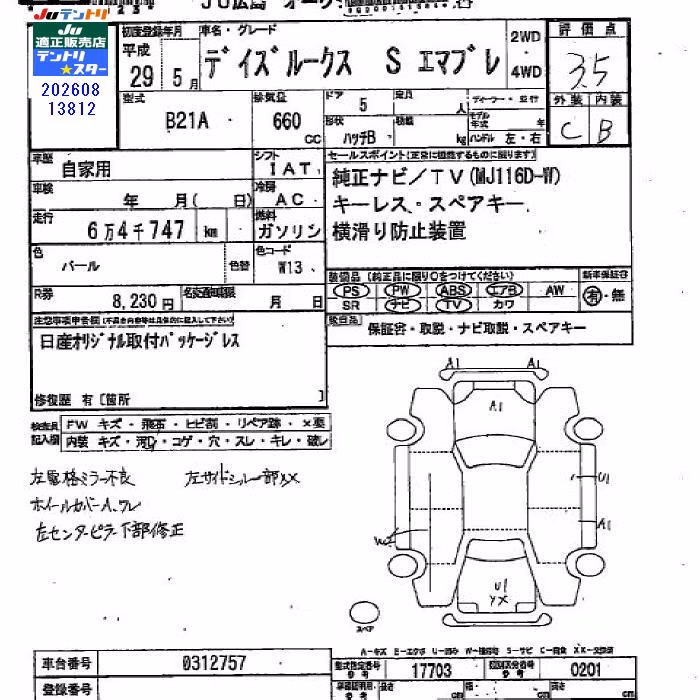 Juテントリ
Ju
適正販売店
テントリ
★スター
202608
13812
初度登録年月 車名・グレード
平成
29 5月
デイズルークス S エマブレ
2WD
4WD
評価点
3.5
外装 内装
C B
型式 B21A
排気量 660 CC
ドア 5
定員 人
形状 ハッチB
積載 kg
ハンドル 左・右
車歴 自家用
シフト IAT
車検 年 月( 日)
冷房 AC
走行 6万4千747 km
燃料 ガソリン
色 パール
色替
色コード W13
R券 8,230円
名変期限 月 日
セールスポイント
純正ナビ/TV(MJ116D-W)
キーレス・スペアキー
横滑り防止装置
装備品(純正品に限り○をつけてください)
新車保証書
PS PW ABS エアB AW
有・無
SR ナビ TV カワ
後日品 保証書・取説・ナビ取説・スペアキー
注意事項申告欄
日産オリジナル取付パッケージレス
修復歴 有〔箇所 〕
検査員
記入欄
FW キズ・飛石・ヒビ割・リペア跡・×要
内装 キズ・汚レ・コゲ・穴・スレ・キレ・破レ
左電格ミラー不良 左サイドシル一部XX
ホイールカバーA.ワレ
左センターピラー下部修正
A1 A1
A1
U1
A1
W
U1
XX
スペア
A-キズ E-エクボ U-凹み
車台番号 0312757
型式指定番号 17703
類別区分番号 0201
登録番号
長さ cm
幅 cm
高さ cm